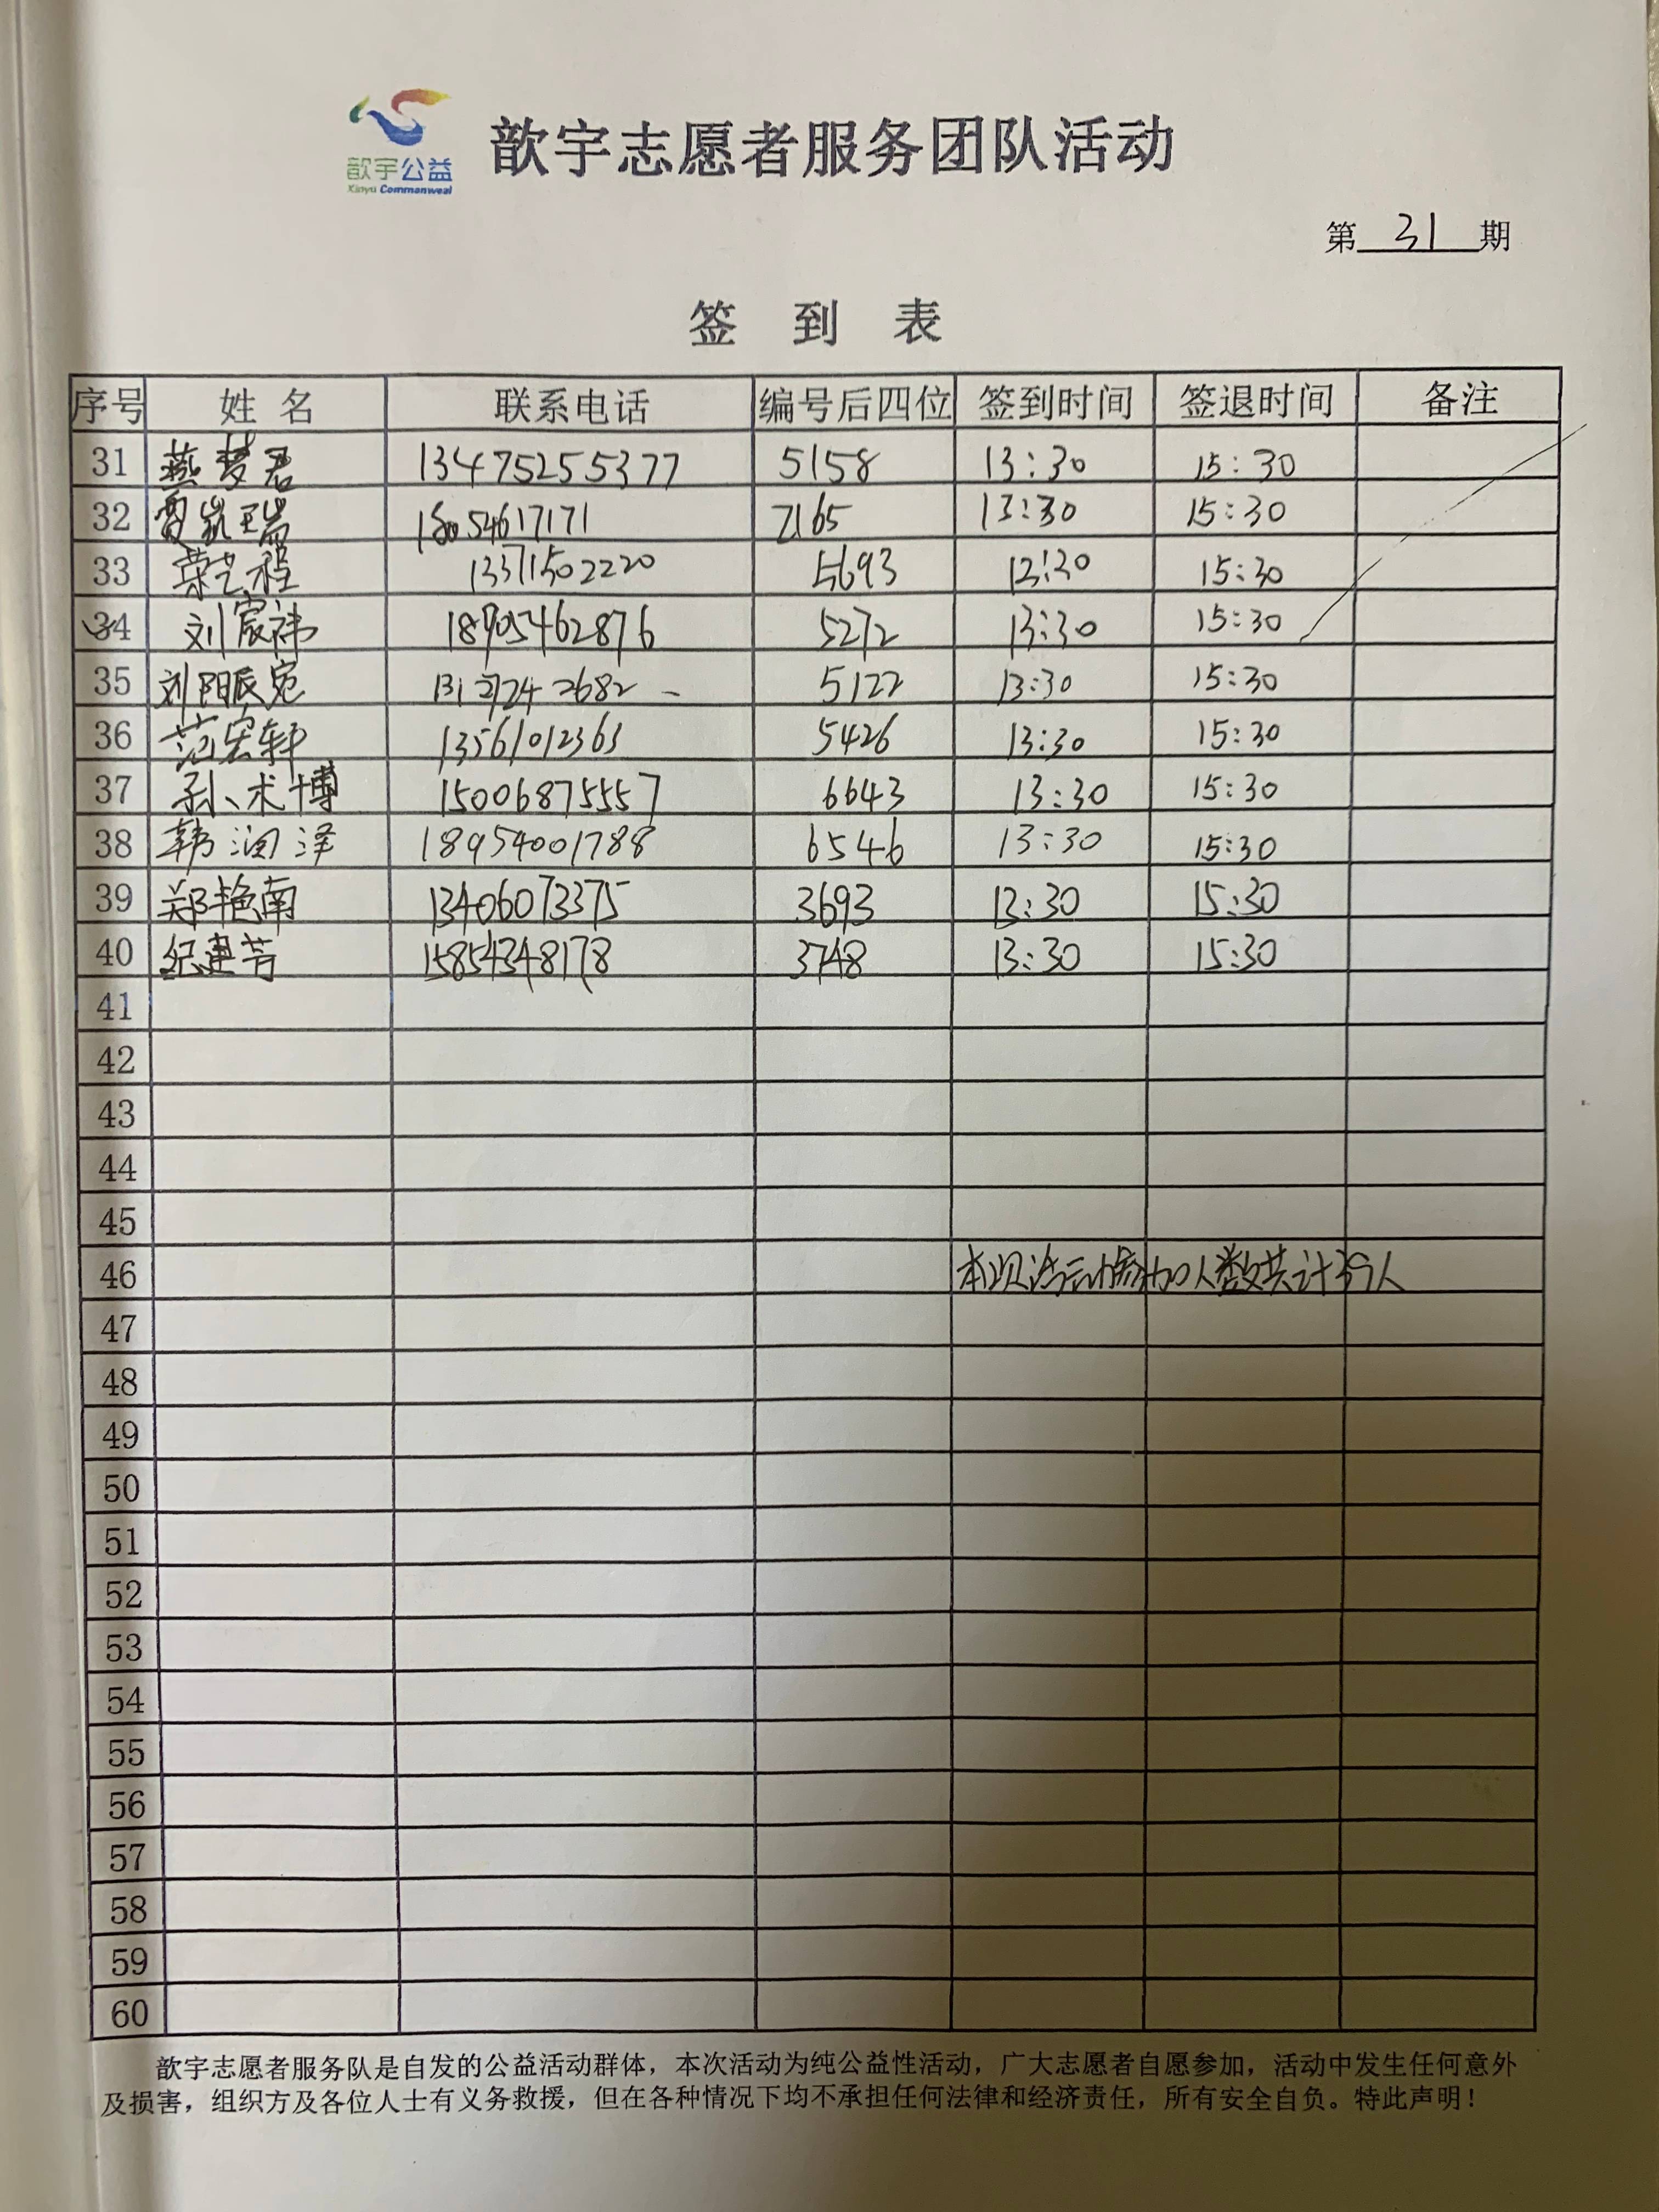 歆宇公益
Xinyu Commonweal
歆宇志愿者服务团队活动
第 31 期
签 到 表
序号 姓 名 联系电话 编号后四位 签到时间 签退时间 备注
31 燕梦君 13475255377 5158 13:30 15:30
32 贾凯瑞 18054617171 7165 13:30 15:30
33 荣艺程 13371502220 5693 13:30 15:30
34 刘宸祎 18905462876 5272 13:30 15:30
35 刘阳宸宛 5122 13:30 15:30
36 范宏轩 13561012363 5426 13:30 15:30
37 孙术博 15006875557 6643 13:30 15:30
38 韩润泽 18954001788 6546 13:30 15:30
39 郑艳南 13406073375 3693 13:30 15:30
40 纪建芳 15854348178 3748 13:30 15:30
41
42
43
44
45
46 本次活动参加人数共计39人
47
48
49
50
51
52
53
54
55
56
57
58
59
60
歆宇志愿者服务队是自发的公益活动群体，本次活动为纯公益性活动，广大志愿者自愿参加，活动中发生任何意外
及损害，组织方及各位人士有义务救援，但在各种情况下均不承担任何法律和经济责任，所有安全自负。特此声明！